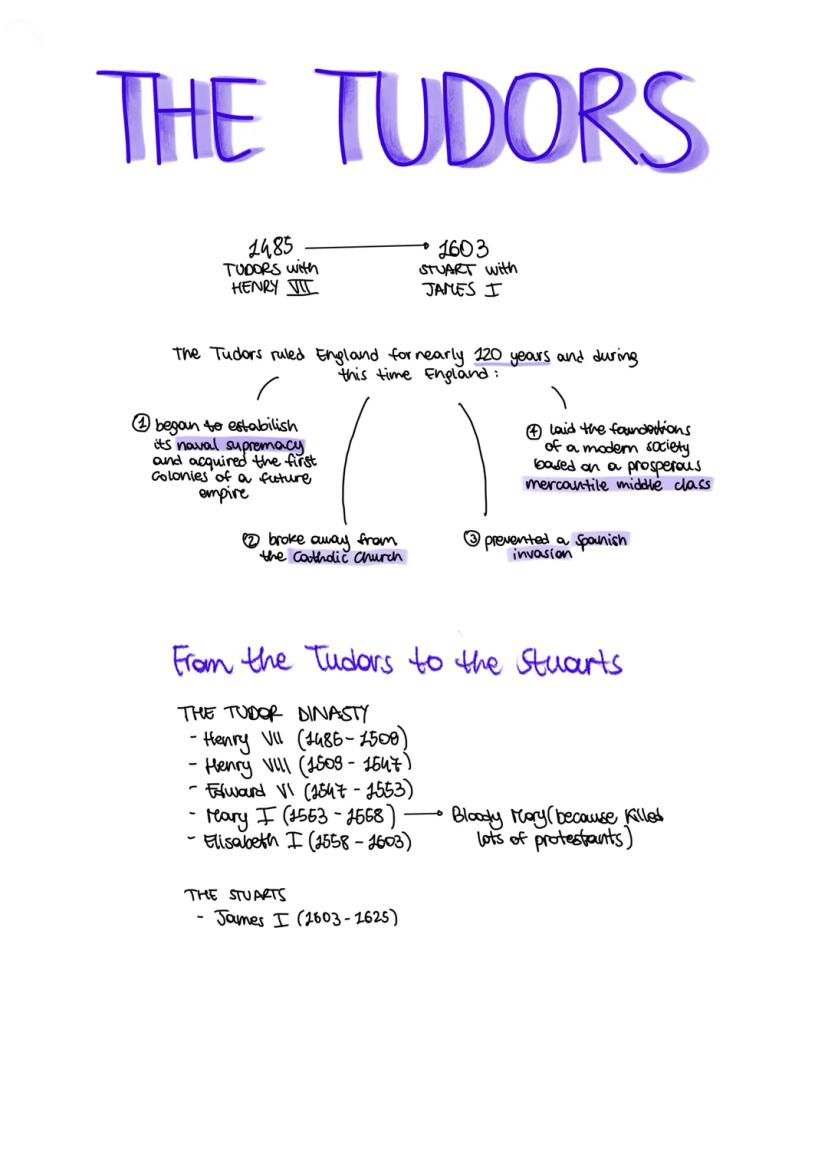 THE TUDORS
1485 → 1603
TUDORS with
HENRY VII
STUART with
JAMES I
The Tudors ruled England for nearly 120 years and during
this time England:
① began to estabilish
its naval supremacy
and acquired the first
colonies of a future
empire
② broke away from
the Catholic Church
③ prevented a Spanish
invasion
④ laid the foundations
of a modern society
based on a prosperous
mercantile middle class
From the Tudors to the Stuarts
THE TUDOR DINASTY
- Henry VII (1485 - 1509)
- Henry VIII (1509 - 1547)
- Edward VI (1547 - 1553)
- Mary I (1553 - 1558) → Bloody Mary (because killed
lots of protestants)
- Elisabeth I (1558 - 1603)
THE STUARTS
- James I (1603 - 1625)